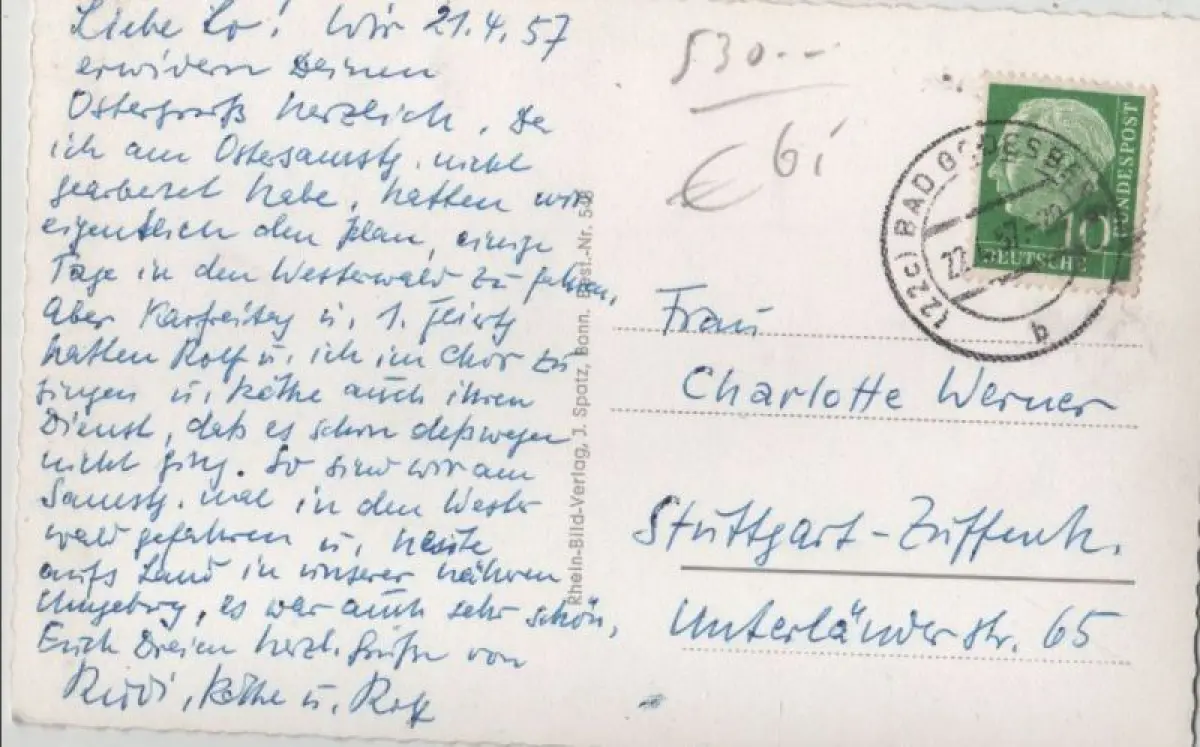 Liebe Lo! Wir 21.4.57
erwidern Deinen
Ostergruß herzlich. Da
ich am Ostersamstg. nicht
gearbeitet habe, hatten wir
eigentlich den Plan, einige
Tage in den Westerwald zu fahren,
Aber Karfreitag u. 1. Feiertg
hatten Rolf u. ich im Chor zu
singen u. Käthe auch ihren
Dienst, daß es schon deßwegen
nicht ging. So sind wir am
Samstg. mal in den Wester
wald gefahren u. heute
aufs Land in unserer nähren
Umgebung, es war auch sehr schön,
Euch Dreien herzl. Grüße von
Rudi, Käthe u. Rolf
Rhein-Bild-Verlag, J. Spatz, Bonn. Best.-Nr.
530.--
€
DEUTSCHE
BUNDESPOST
10
(22c) BAD GODESBERG
b
Frau
Charlotte Werner
Stuttgart-Zuffenh.
Unterländerstr. 65